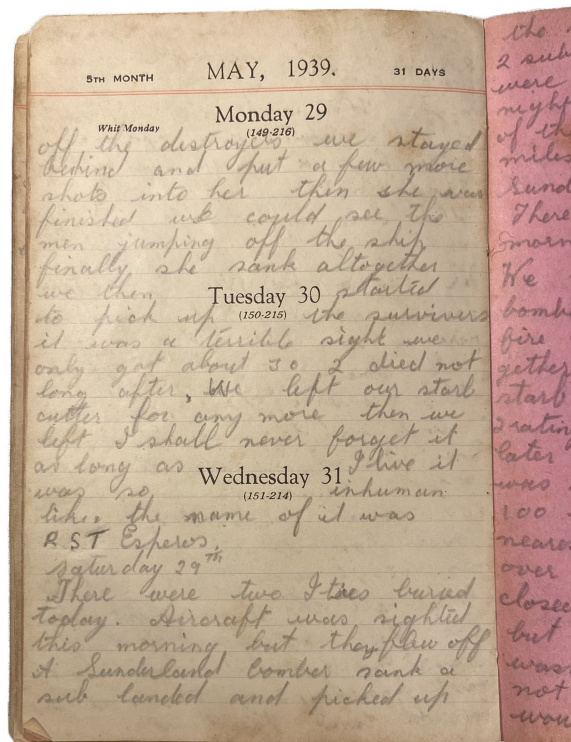 5TH MONTH MAY, 1939. 31 DAYS
Monday 29
Whit Monday (149-216)
off the destroyers we stayed
behind and put a few more
shots into her then she was
finished we could see the
men jumping off the ship
finally she sank altogether
we then started
Tuesday 30
to pick up the survivers
(150-215)
it was a terrible sight we
only got about 30 2 died not
long after, We left our starb
cutter for any more then we
left I shall never forget it
as long as I live it
Wednesday 31
was so inhuman
(151-214)
like. the name of it was
R S T Esperos.
Saturday 29TH
There were two Ities buried
today. Aircraft was sighted
this morning but they flew off
A Sunderland bomber sank a
sub landed and picked up
the
2 sub
were
night
of th
miles
Sund
There
morn
We
bomb
fire
gether
starb
2 ratin
later
was
100
neares
over
closed
but
was
not
wou